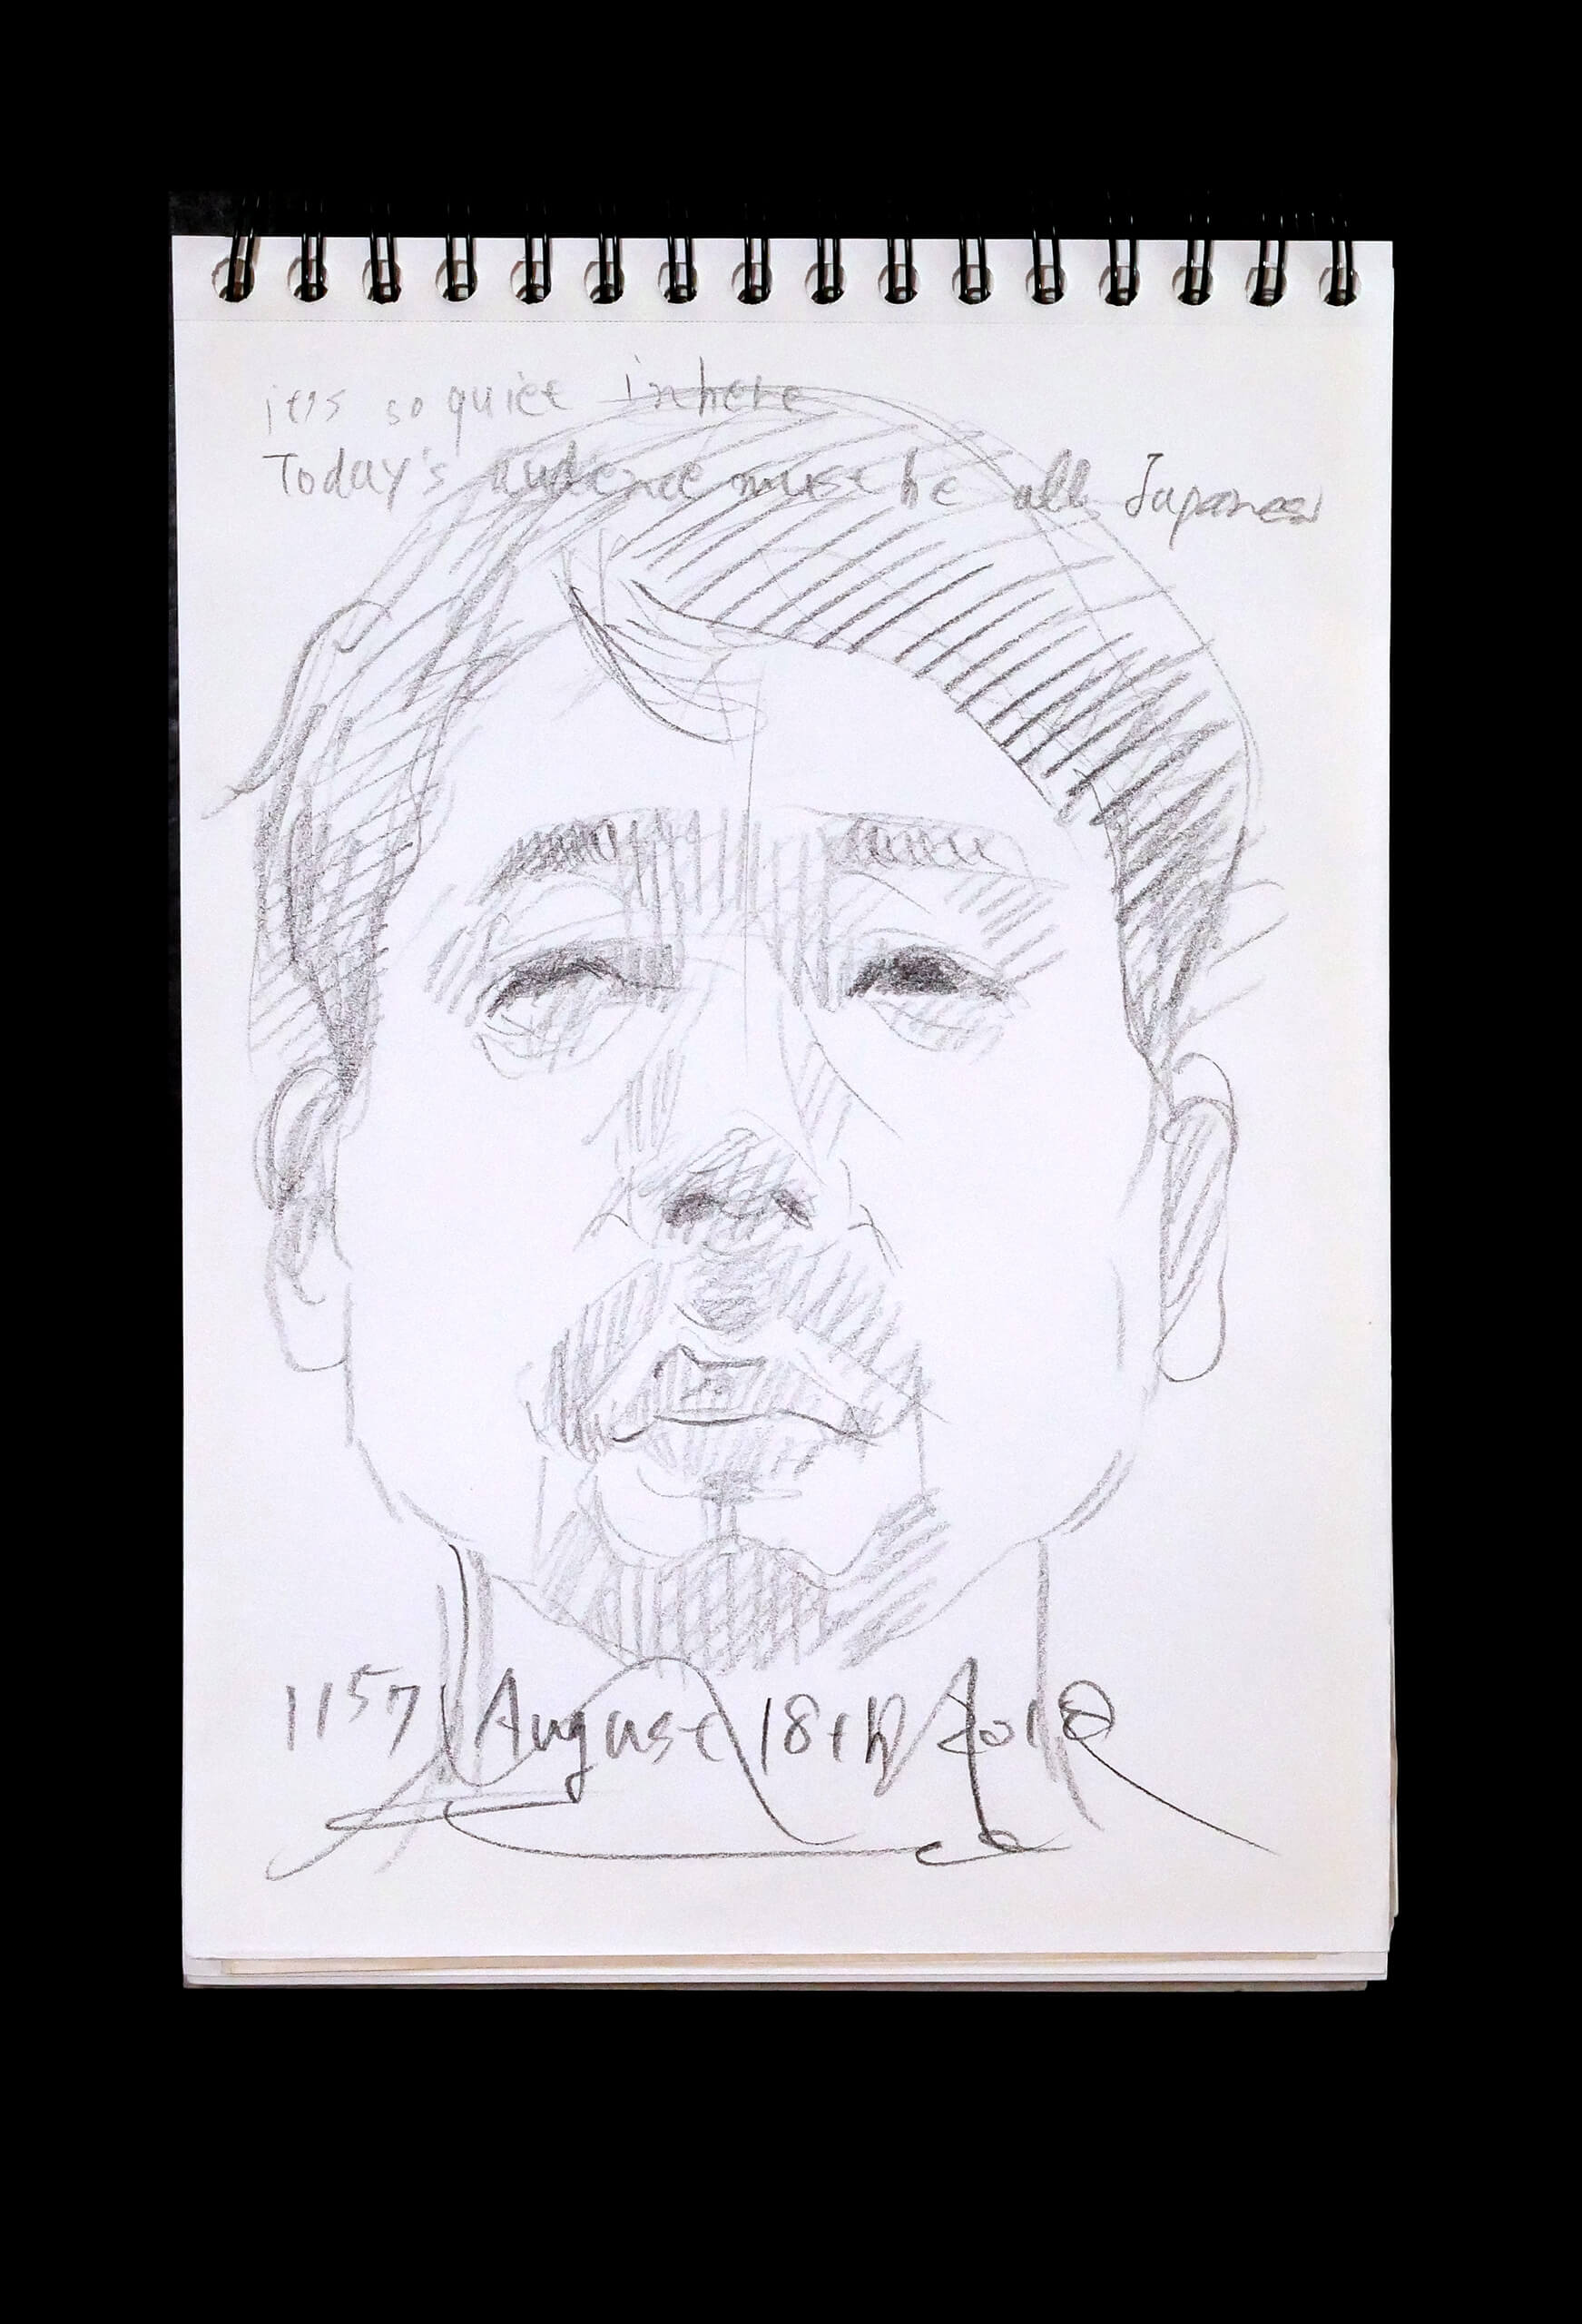 it's so quiet in here
Today's audience must be all Japanese
1157 August 18th 2018